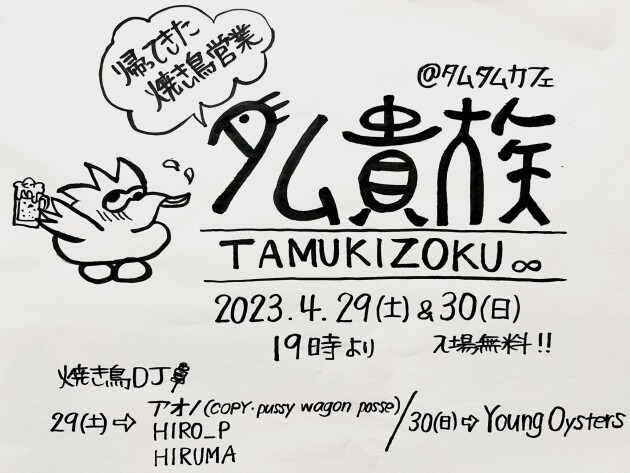 帰ってきた
焼き鳥営業
@タムタムカフェ
タム貴族
TAMUKIZOKU∞
2023.4.29(土)&30(日)
19時より 入場無料!!
焼き鳥DJ
29(土)⇨ アオノ(COPY・pussy wagon posse)/30(日)⇨ Young Oysters
HIRO_P
HIRUMA